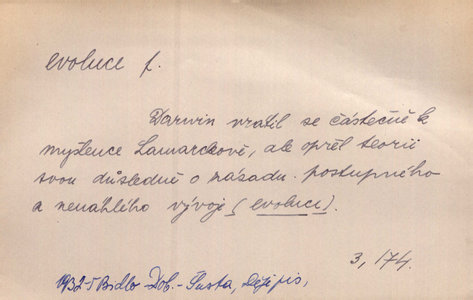 evoluce f.
Darwin vrátil se částečně k
myšlence Lamarckově, ale opřel teorii
svou důsledně o zásadu postupného
a nenáhlého vývoje (evoluce).
3, 174.
1932-5 Bidlo-Dob.-Šusta, Dějepis,